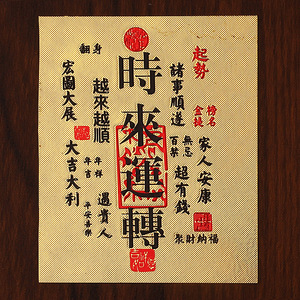 起勢
諸事順遂
榜名
金徒
百禁
無忌
家人安康
超有錢
福納財聚
時來運轉
翻身
越來越順
宏圖大展
年年
吉祥
遇貴人
大吉大利
平安喜樂